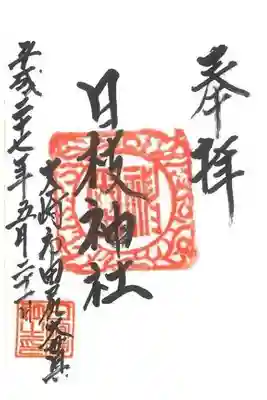 奉拝
日枝神社
大崎市田尻大貫
平成二十七年五月二十一日